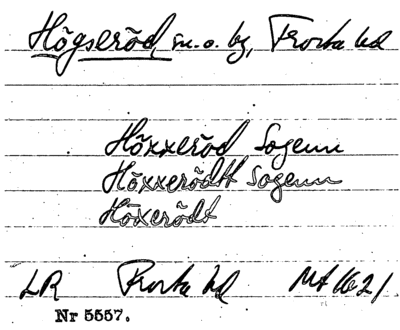 Högseröd, sn. o. by, Frosta hd
Höxxeröd Sogenn
Höxxerödtt Sogenn
Höxerödt
LR Frosta hd Mt 1621
Nr 5557.